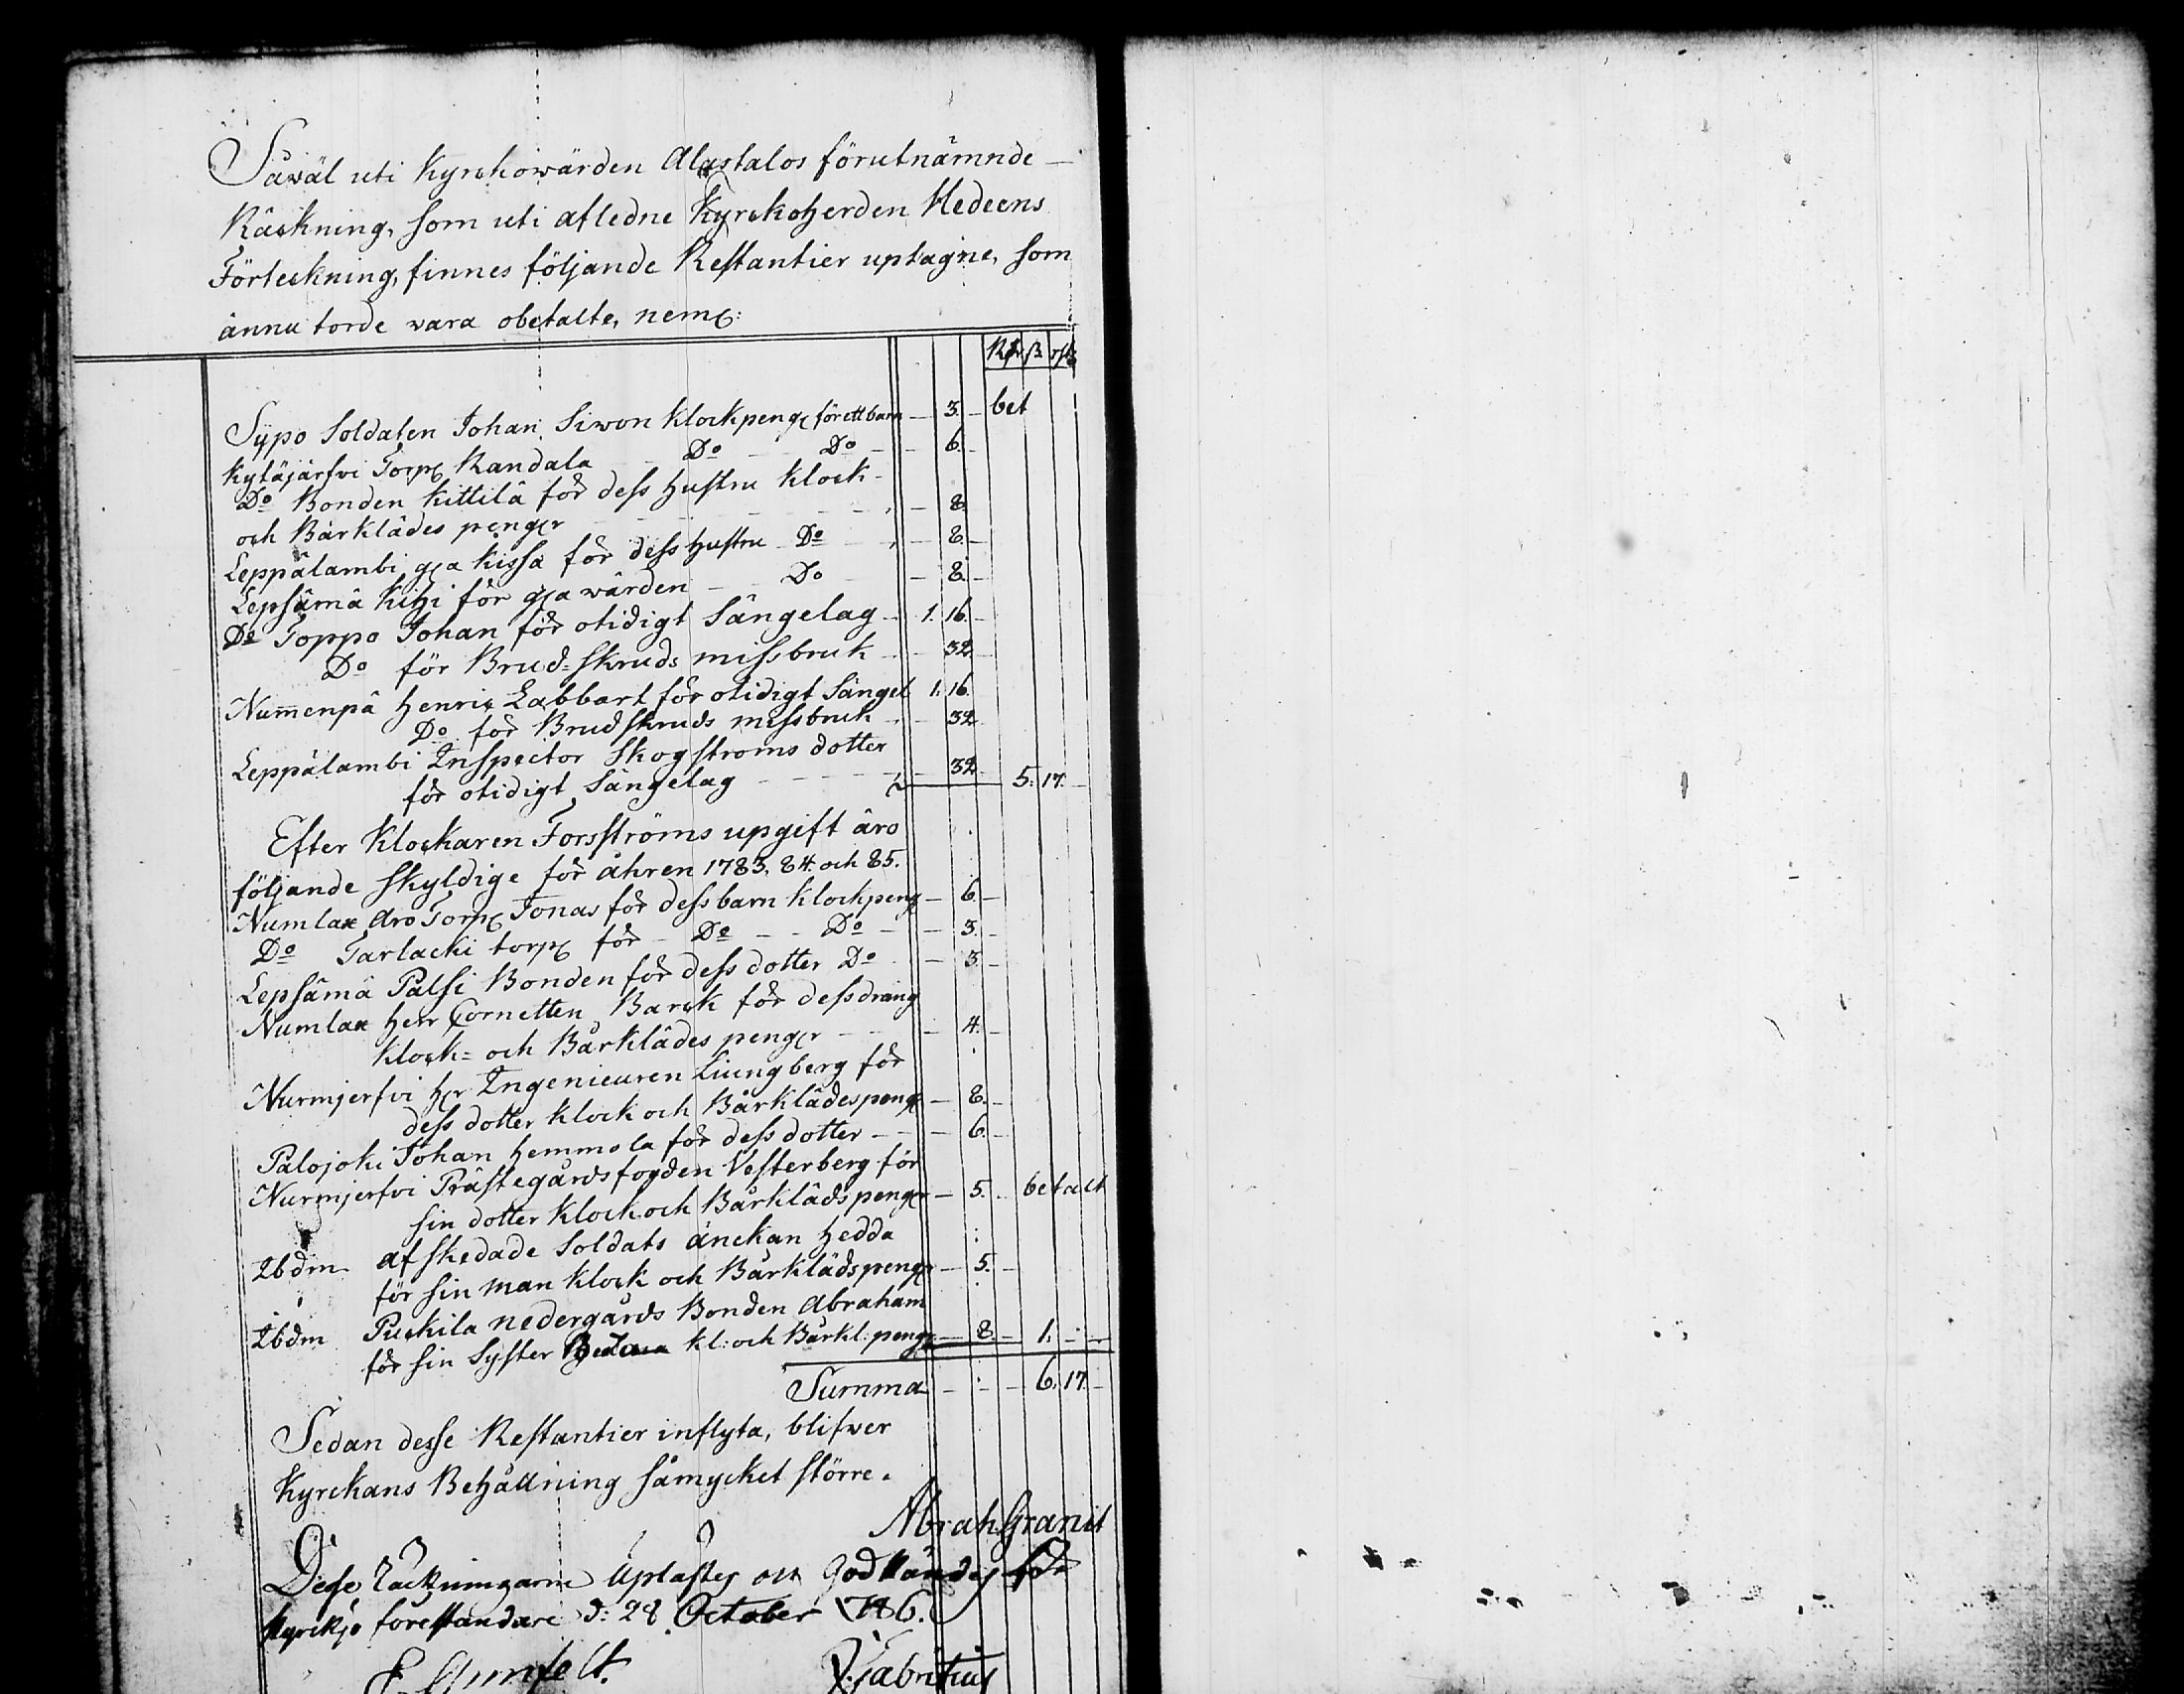 Såwäl uti Kyrckowärden Alastalos förutnämnde
Räckning, som uti afledne Kyrckoherden Hedeens
Förteckning, finnes följande Restantier uptagne, som
ännu torde vara obetalte, neml:
Rd ß rst
Sypo Soldaten Johan Siwon Klockpeng för ett barn — 3. — bet
Kytäjärfvi Torp Randala Do Do — 6. —
Do Bonden Kittilä för dess Hustru Klock-
och Bårklädes penger — 8.
Leppälambi gla Kissa för dess Hustru Do — 8. —
Lepsämä Kihi för gla wärden — Do — 8. —
Do Toppo Johan för otidigt Sängelag — 1. 16. —
Do för Brud=Skruds missbruk — 32. —
Num̄enpä Henric Labbart för otidigt Sängel 1. 16.
Do för Brudskruds missbruk — 32
Leppälambi Inspector Skogströms dotter
för otidigt Sängelag — 32. 5. 17. —
Efter Klockaren Forsströms upgift äro
följande Skyldige för åhren 1783, 84. och 85.
Numlax Aro Torp Jonas för dess barn Klockpeng — 6. —
Do Tarlacki torp för — Do — Do — 3. —
Lepsämä Palsi Bonden för dess dotter Do — 3. —
Numlax Herr Cornetten Barck för dess dräng
Klock= och Bårklädes penger — 4. —
Nurmjerfvi Hr Ingenieuren Liungberg för
dess dotter Klock och Bårklädes peng — 8. —
Palojoki Johan Hemmola för dess dotter — 6. —
Nurmjerfvi Prästegårdsfogden Vesterberg för
sin dotter Klock och Bårkläds penger — 5. — betalt
Ibdm afskedade Soldats änckan Hedda
för sin man Klock och Bårkläds penger — 5. —
Ibdm Puckila nedergårds Bonden Abraham
för sin Syster Kl: och Bårkl: peng — 8. — 1. — —
Summa — — — 6. 17. —
Sedan desse Restantier inflyta, blifver
Kyrckans Behållning såmycket större.
Abrah. Granit
Desse Räckningarne uplästes och Godkändes för
Kyrckjo föreståndare d: 28 October 1786.
Fabritius